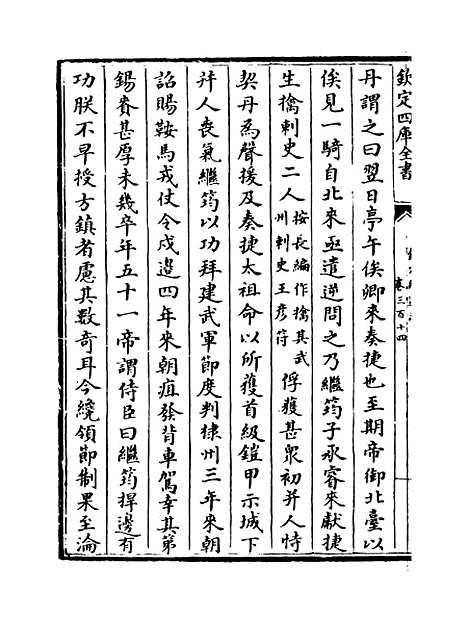 欽定四庫全書
卷三百十四
丹謂之曰翌日亭午俟卿來奏捷也至期帝御北臺以
俟見一騎自北來亟遣逆問之乃繼筠子承睿來獻捷
生擒刺史二人按長編作擒其武州刺史王彥符俘獲甚衆初并人恃
契丹為聲援及奏捷太祖命以所獲首級鎧甲示城下
并人喪氣繼筠以功拜建武軍節度判棣州三年來朝
詔賜鞍馬戎仗令戍邊四年來朝疽發背車駕幸其第
錫賚甚厚未幾卒年五十一帝謂侍臣曰繼筠捍邊有
功朕不早授方鎮者慮其數奇耳今纔領節制果至淪